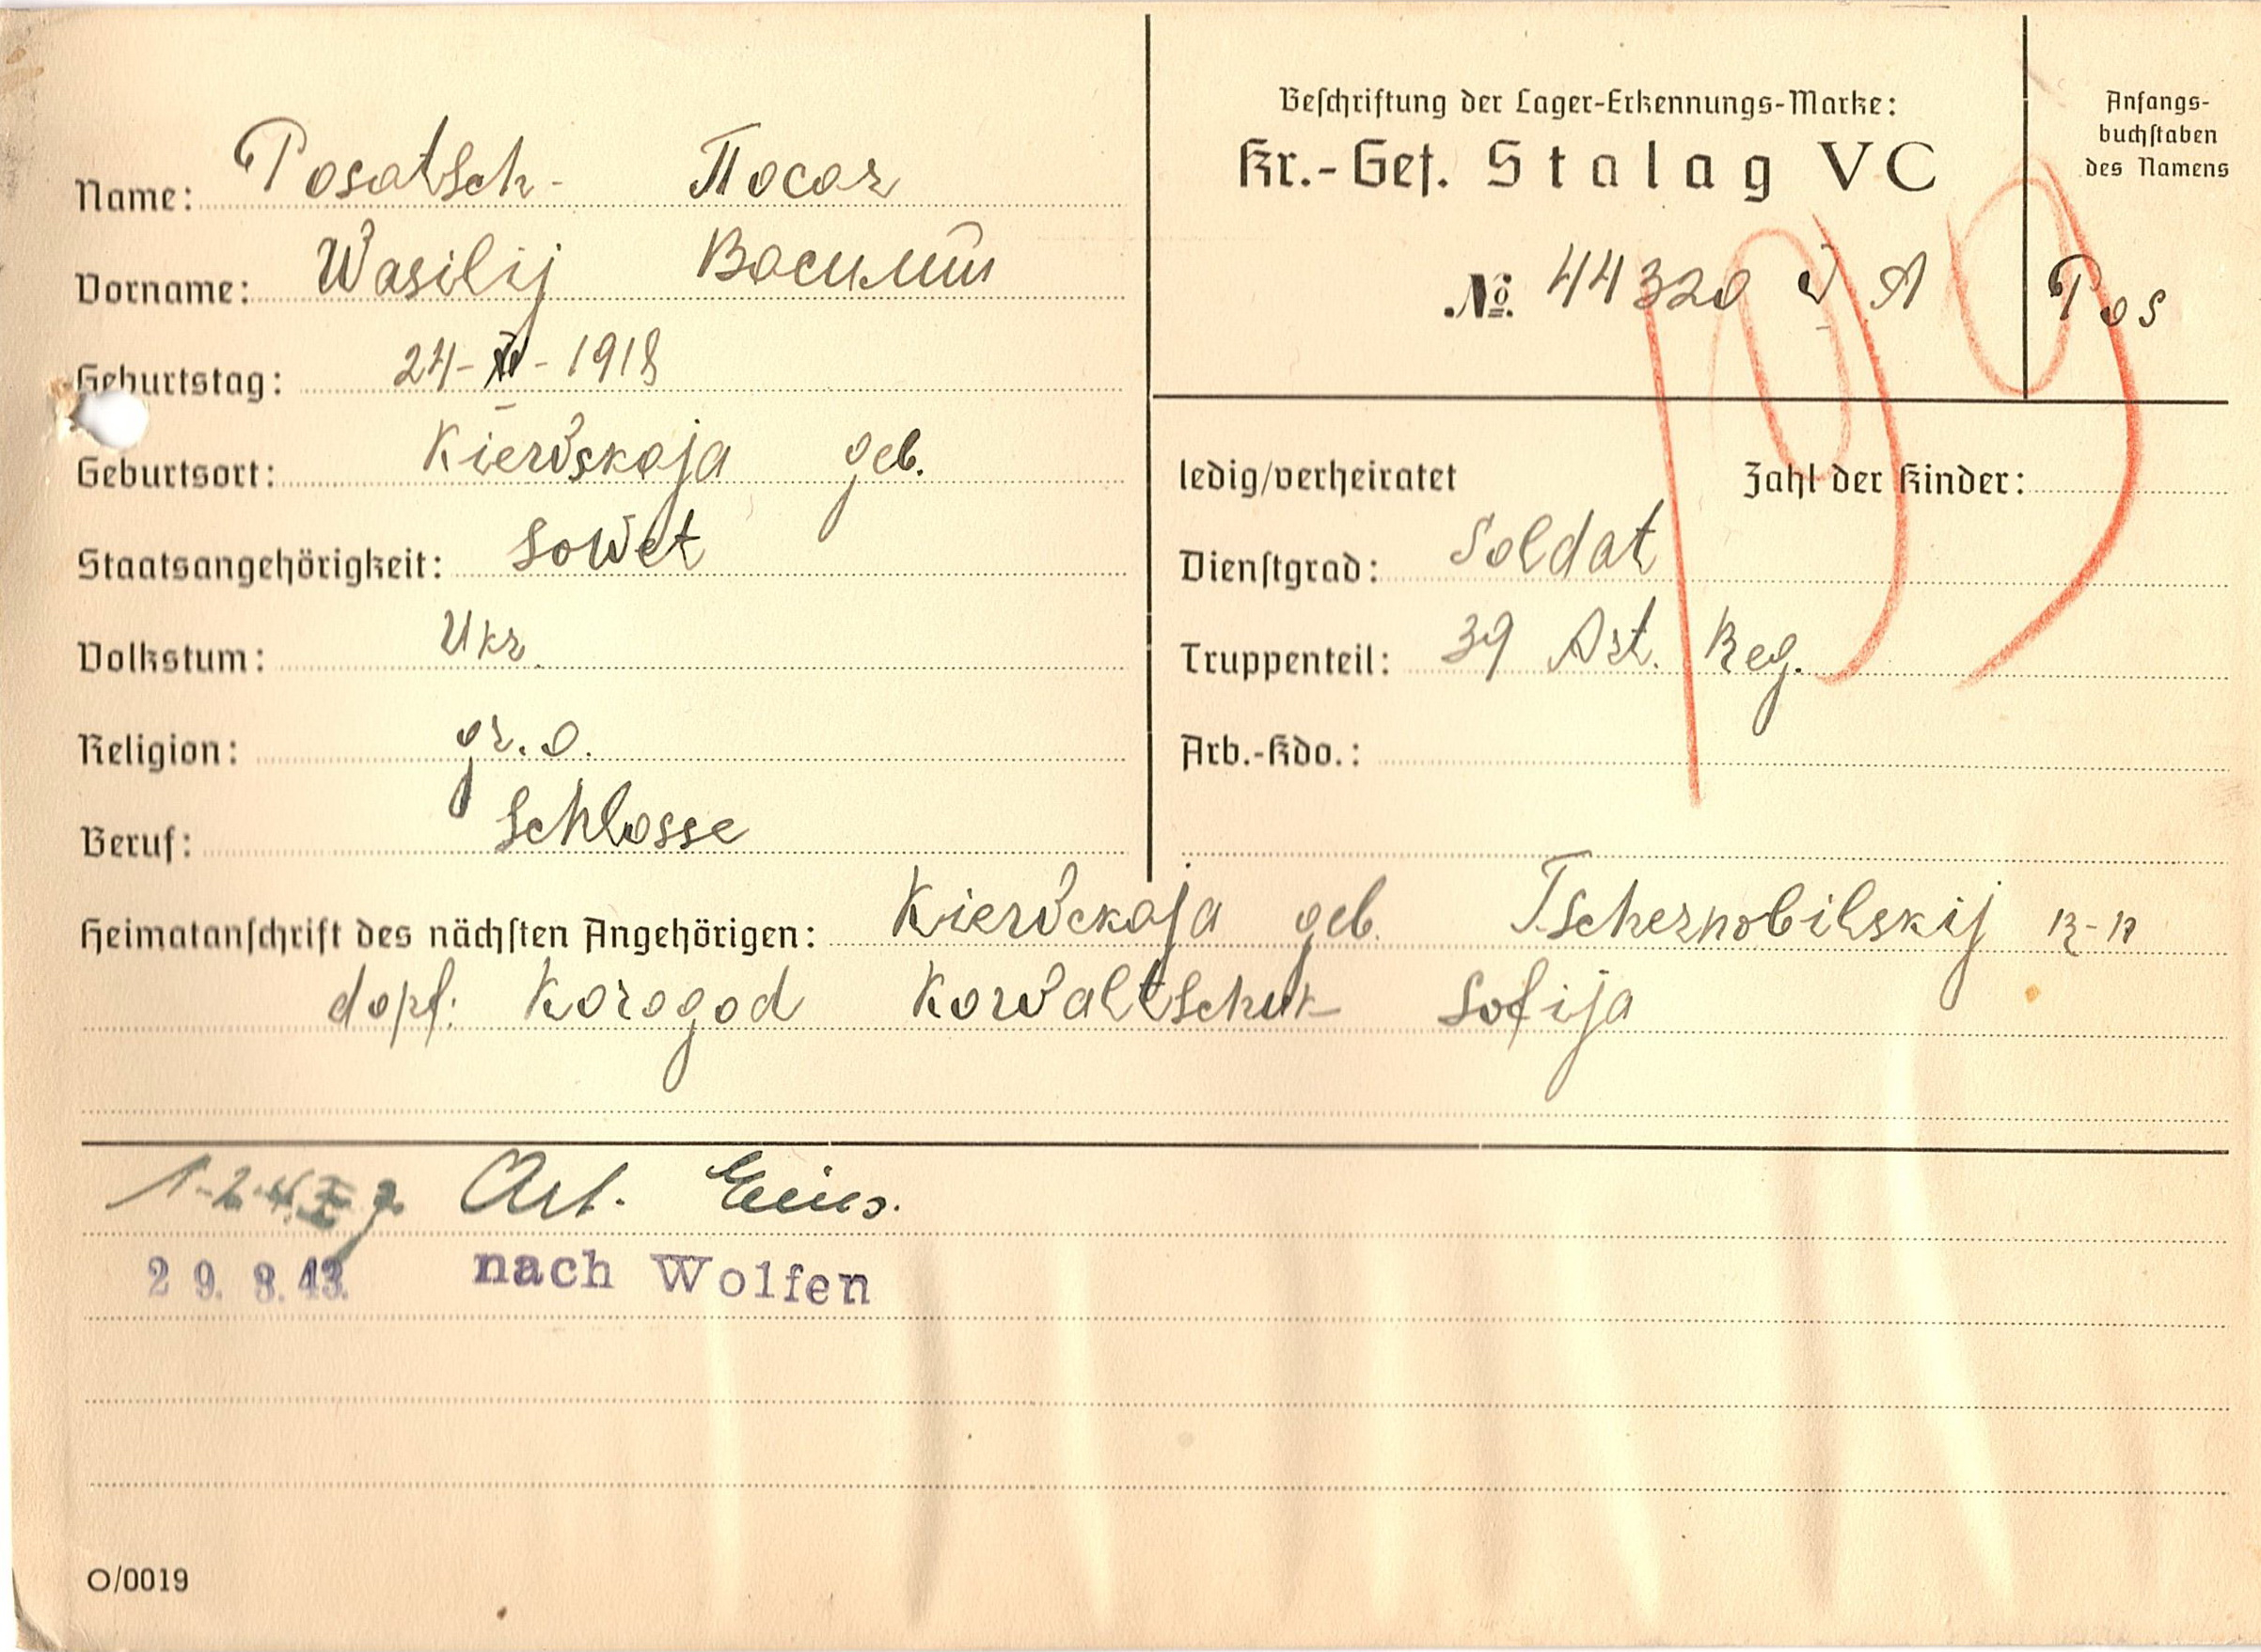 Beschriftung der Lager-Erkennungs-Marke:
Kr.-Gef. Stalag VC
№ 44320 A
Anfangs-
buchstaben
des Namens
Pos
Name: Posatsch- Посач
Vorname: Wasilij Василий
Geburtstag: 24- -1918
Geburtsort: Kiewskaja geb.
Staatsangehörigkeit: Sowet
Volkstum: Ukr.
Religion: gr. o.
Beruf: Schlosse
ledig/verheiratet Zahl der Kinder:
Dienstgrad: Soldat
Truppenteil: 39 Art. Reg.
Arb.-Kdo.:
Heimatanschrift des nächsten Angehörigen: Kiewckaja geb. Tschernobilskij R-n
dopf: Korogod Kowaltschuk Sofija
29. 8. 43. nach Wolfen
O/0019